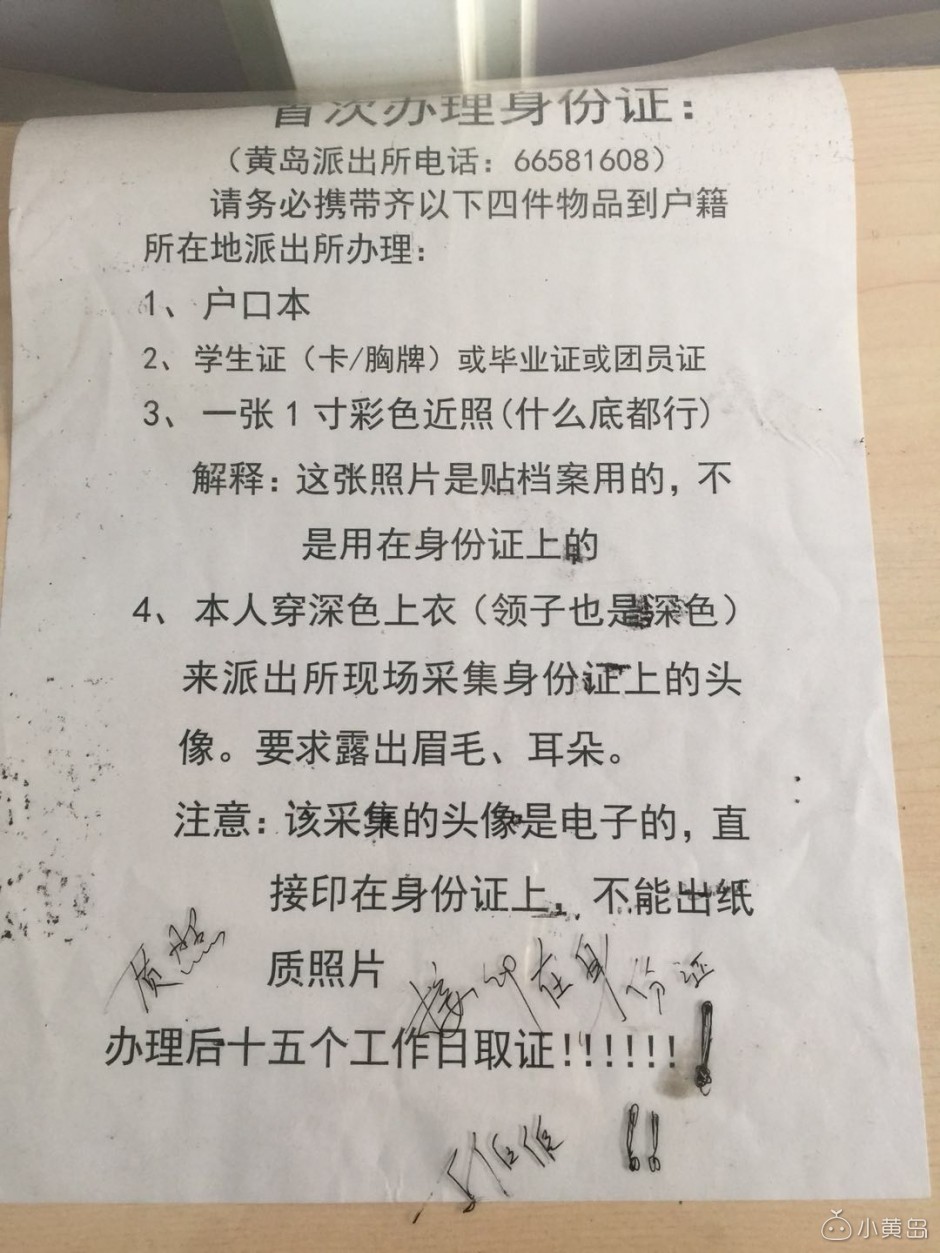 首次办理身份证：
（黄岛派出所电话：66581608）
请务必携带齐以下四件物品到户籍
所在地派出所办理：
1、户口本
2、学生证（卡/胸牌）或毕业证或团员证
3、一张1寸彩色近照(什么底都行)
解释：这张照片是贴档案用的，不
是用在身份证上的
4、本人穿深色上衣（领子也是深色）
来派出所现场采集身份证上的头
像。要求露出眉毛、耳朵。
注意：该采集的头像是电子的，直
接印在身份证上，不能出纸
质照片
质照
接印在身份证
办理后十五个工作日取证!!!!!!
!
!!
小黄岛